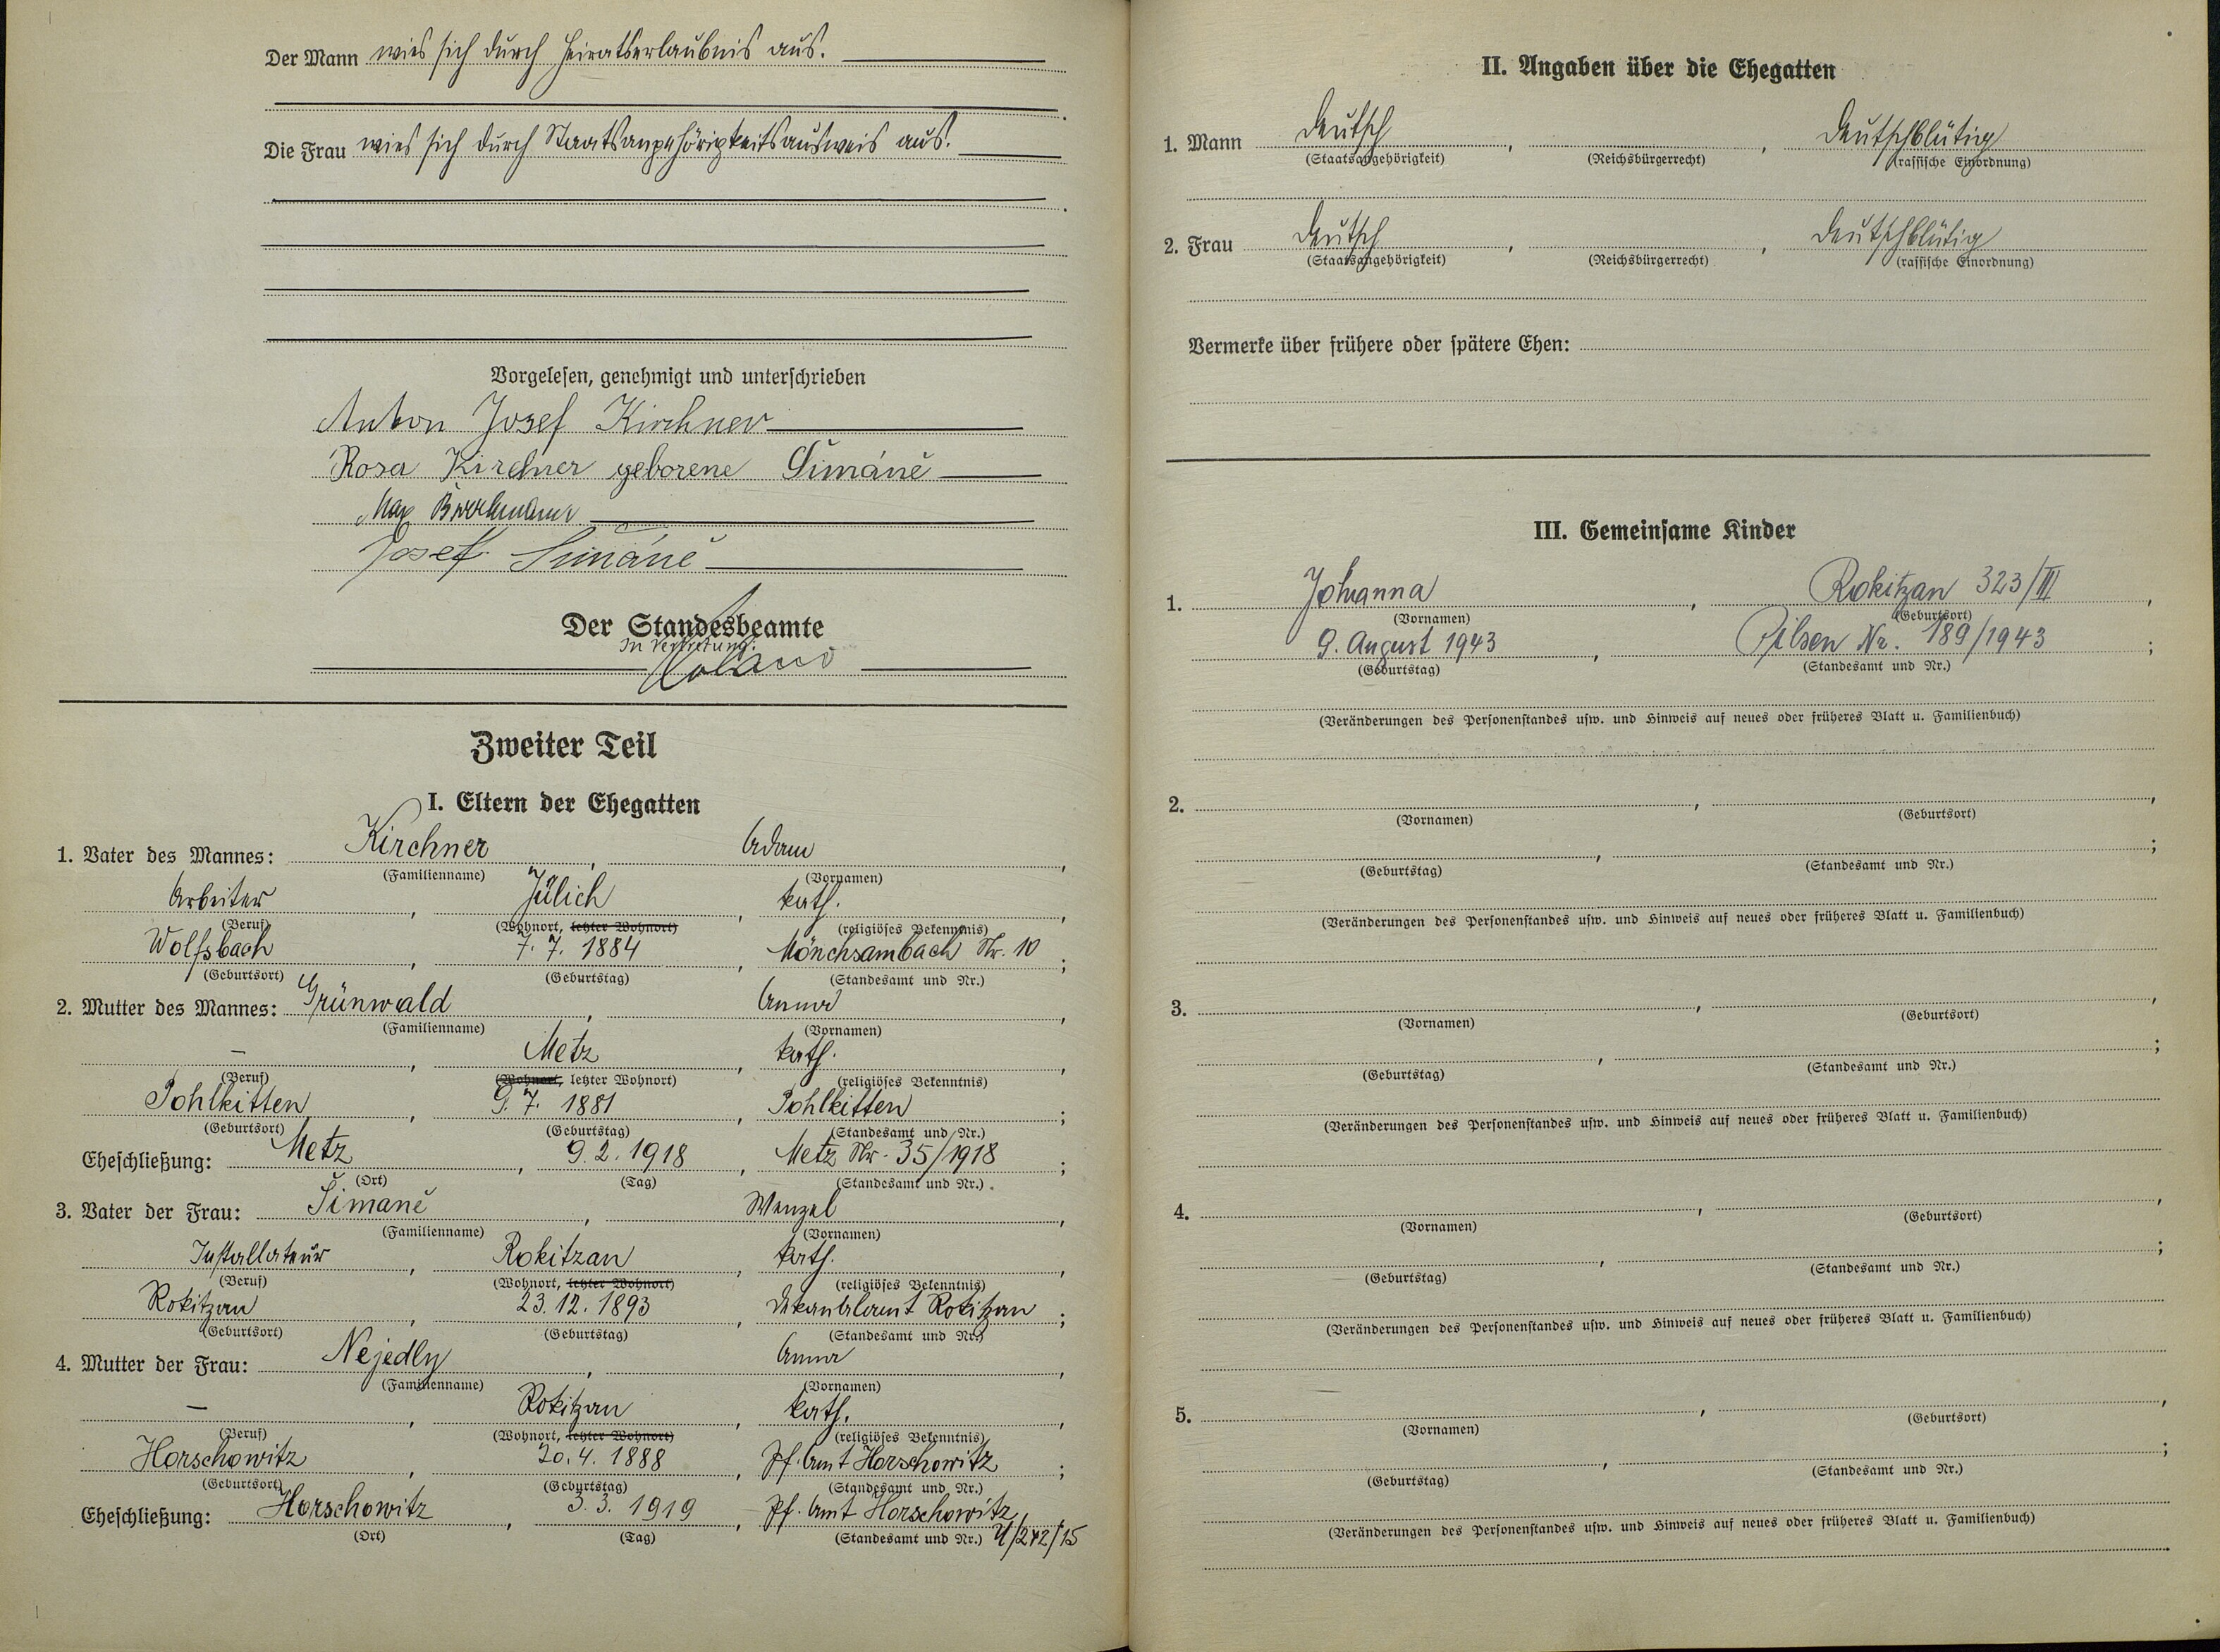 Der Mann wies sich durch Heiratserlaubnis aus.
Die Frau wies sich durch Staatsangehörigkeitsausweis aus.
Vorgelesen, genehmigt und unterschrieben
Anton Josef Kirchner
Rosa Kirchner geborene Šimáně
Max
Josef Šimáně
Der Standesbeamte
In Vertretung:
Zweiter Teil
I. Eltern der Ehegatten
1. Vater des Mannes: Kirchner, Adam,
(Familienname) (Vornamen)
Arbeiter, Jülich, kath.,
(Beruf) (Wohnort, letzter Wohnort) (religiöses Bekenntnis)
Wolfsbach, 7. 7. 1884, Mönchsambach Nr. 10;
(Geburtsort) (Geburtstag) (Standesamt und Nr.)
2. Mutter des Mannes: Grünwald, Anna,
(Familienname) (Vornamen)
—, Metz, kath.,
(Beruf) (Wohnort, letzter Wohnort) (religiöses Bekenntnis)
Pohlkitten, 9. 7. 1881, Pohlkitten;
(Geburtsort) (Geburtstag) (Standesamt und Nr.)
Eheschließung: Metz, 9. 2. 1918, Metz Nr. 35/1918;
(Ort) (Tag) (Standesamt und Nr.)
3. Vater der Frau: Šimaně, Wenzel,
(Familienname) (Vornamen)
Installateur, Rokitzan, kath.,
(Beruf) (Wohnort, letzter Wohnort) (religiöses Bekenntnis)
Rokitzan, 23. 12. 1893, Dekanalamt Rokitzan;
(Geburtsort) (Geburtstag) (Standesamt und Nr.)
4. Mutter der Frau: Nejedly, Anna,
(Familienname) (Vornamen)
—, Rokitzan, kath.,
(Beruf) (Wohnort, letzter Wohnort) (religiöses Bekenntnis)
Horschowitz, 20. 4. 1888, Pf. Amt Horschowitz;
(Geburtsort) (Geburtstag) (Standesamt und Nr.)
Eheschließung: Horschowitz, 3. 3. 1919, Pf. Amt Horschowitz
(Ort) (Tag) (Standesamt und Nr.)
II. Angaben über die Ehegatten
1. Mann deutsch, , deutschblütig
(Staatsangehörigkeit) (Reichsbürgerrecht) (rassische Einordnung)
2. Frau deutsch, , deutschblütig
(Staatsangehörigkeit) (Reichsbürgerrecht) (rassische Einordnung)
Vermerke über frühere oder spätere Ehen:
III. Gemeinsame Kinder
1. Johanna, Rokitzan 323/III,
(Vornamen) (Geburtsort)
9. August 1943, Pilsen Nr. 189/1943;
(Geburtstag) (Standesamt und Nr.)
(Veränderungen des Personenstandes usw. und Hinweis auf neues oder früheres Blatt u. Familienbuch)
2. , ,
(Vornamen) (Geburtsort)
, ;
(Geburtstag) (Standesamt und Nr.)
(Veränderungen des Personenstandes usw. und Hinweis auf neues oder früheres Blatt u. Familienbuch)
3. , ,
(Vornamen) (Geburtsort)
, ;
(Geburtstag) (Standesamt und Nr.)
(Veränderungen des Personenstandes usw. und Hinweis auf neues oder früheres Blatt u. Familienbuch)
4. , ,
(Vornamen) (Geburtsort)
, ;
(Geburtstag) (Standesamt und Nr.)
(Veränderungen des Personenstandes usw. und Hinweis auf neues oder früheres Blatt u. Familienbuch)
5. , ,
(Vornamen) (Geburtsort)
, ;
(Geburtstag) (Standesamt und Nr.)
(Veränderungen des Personenstandes usw. und Hinweis auf neues oder früheres Blatt u. Familienbuch)